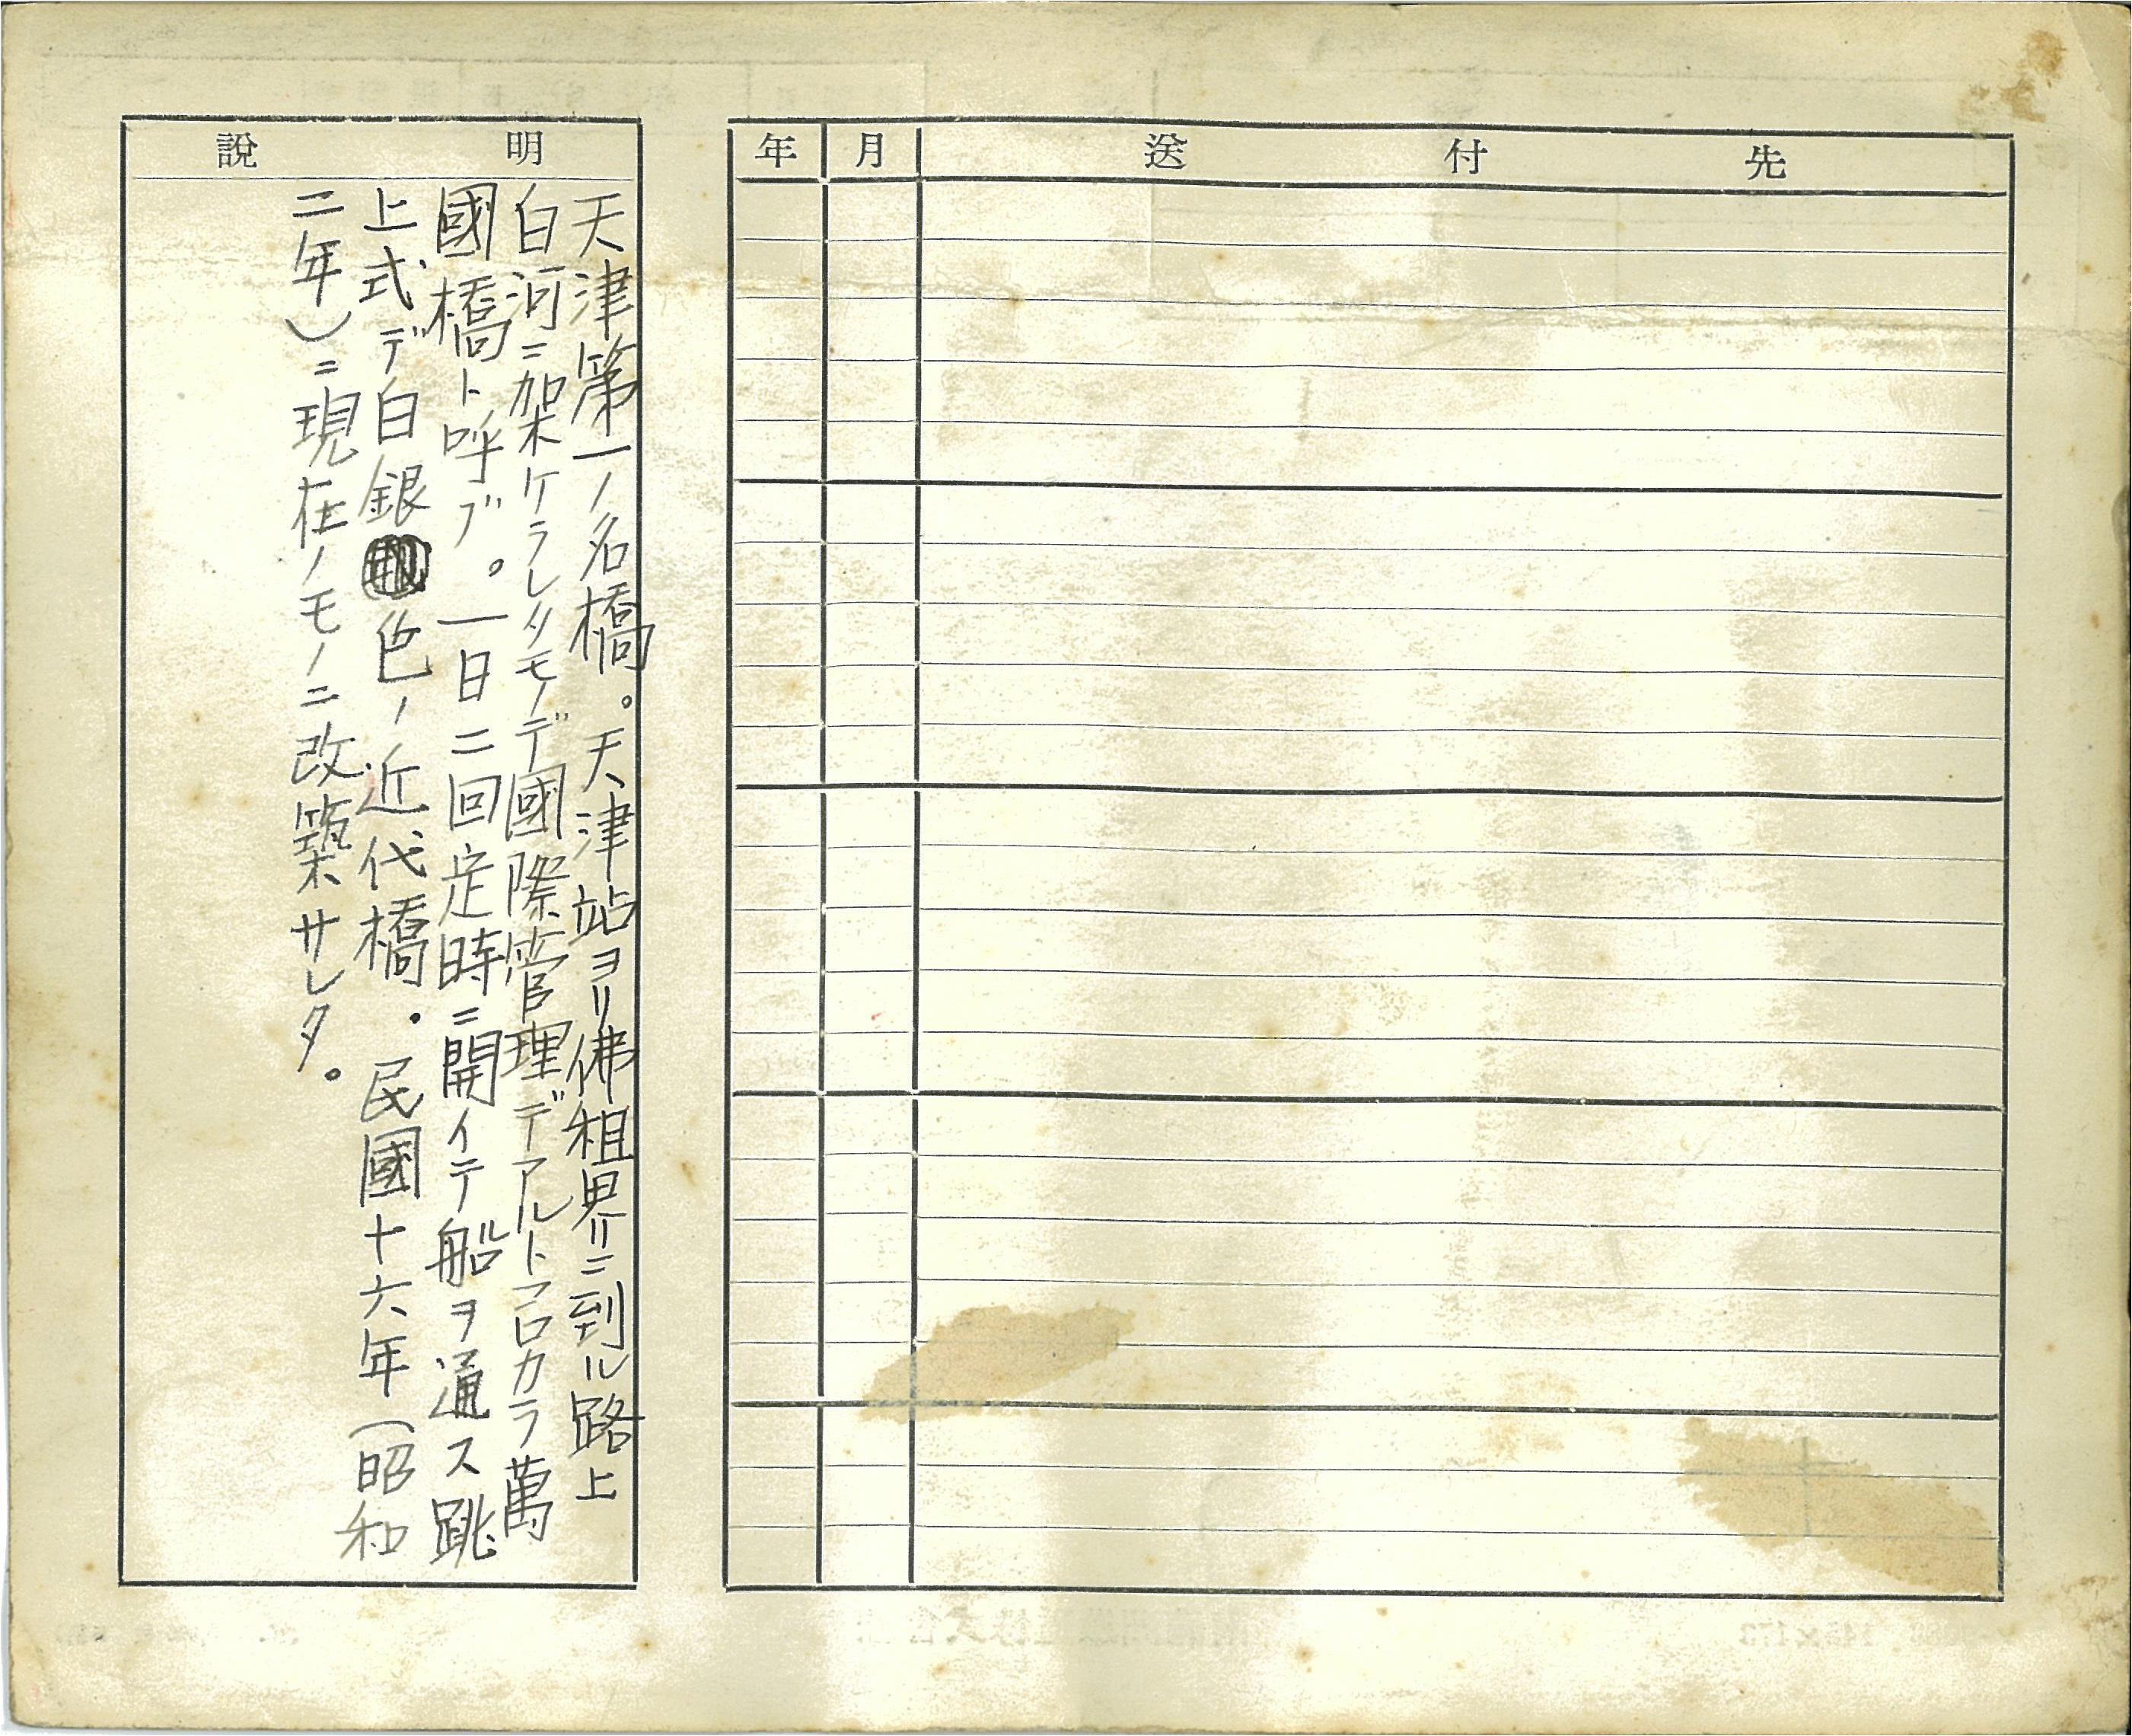 年 月 送付先
説明
天津第一ノ名橋。天津站ヨリ佛租界ニ到ル路上
白河ニ架ケラレタモノデ國際管理デアルトコロカラ萬
國橋ト呼ブ。一日二回定時ニ開イテ船ヲ通ス跳
上式デ白銀色ノ近代橋。民國十六年(昭和
二年)ニ現在ノモノニ改築サレタ。